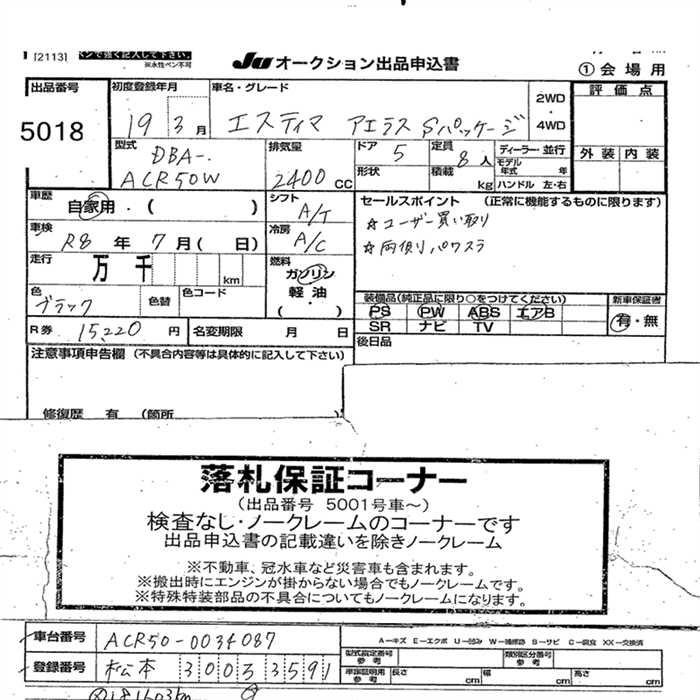 [2113] ペンで強く記入して下さい。
※水性ペン不可
JU オークション出品申込書
①会場用
出品番号 5018
初度登録年月 19 3月
車名・グレード エスティマ アエラス Sパッケージ
2WD・4WD
評価点
外装 内装
型式 DBA-. ACR50W
排気量 2400 CC
ドア 5
定員 8人
ディーラー・並行
形状
積載 kg
モデル年式 年
ハンドル 左・右
車歴 自家用・( )
シフト A/T
セールスポイント (正常に機能するものに限ります)
☆ユーザー買い取り
☆両側パワスラ
車検 R8年7月( 日)
冷房 A/C
走行 万 千 km
燃料 ガソリン 軽油・( )
色 ブラック
色替
色コード
装備品(純正品に限り○をつけてください)
PS PW ABS エアB
SR ナビ TV
新車保証書
有・無
R券 15,220円
名変期限 月 日
後日品
注意事項申告欄 (不具合内容等は具体的に記入して下さい)
修復歴 有 (箇所
落札保証コーナー
(出品番号 5001号車~)
検査なし・ノークレームのコーナーです
出品申込書の記載違いを除きノークレーム
※不動車、冠水車など災害車も含まれます。
※搬出時にエンジンが掛からない場合でもノークレームです。
※特殊特装部品の不具合についてもノークレームになります。
車台番号 ACR50-0034087
A－キズ E－エクボ U－凹み W－補修跡 S－サビ C－腐食 XX－交換済
登録番号 松本 300 ろ 3591
型式指定番号 参考
類別区分番号 参考
車検証明用 参考 長さ cm 幅 cm 高さ cm